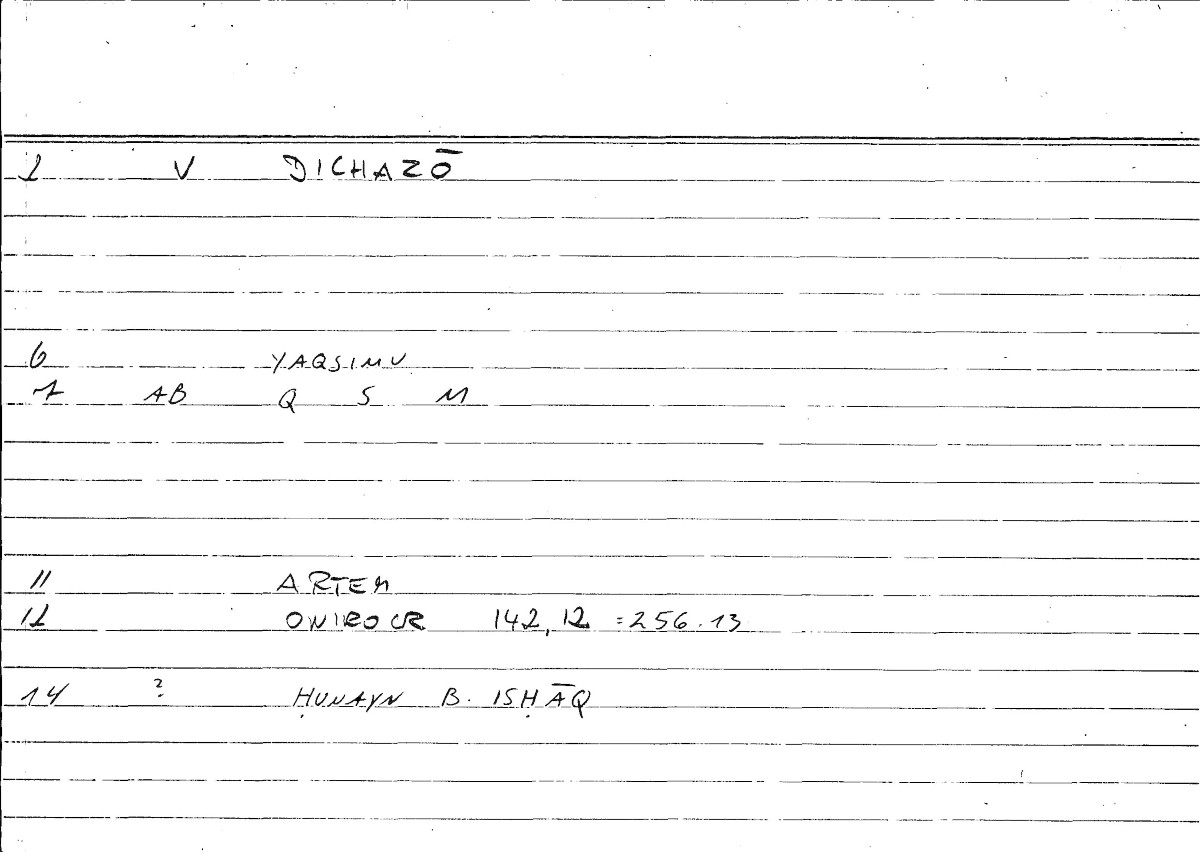 2 V DICHAZŌ
6 YAQSIMU
7 AB Q S M
11 ARTEM
12 ONIROCR 142,12 =256.13
14 ? ḤUNAYN B. ISḤĀQ